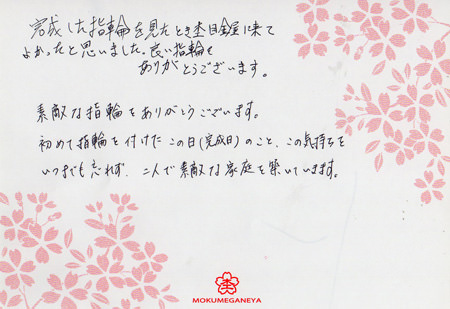 完成した指輪を見たとき杢目金屋に来て
よかったと思いました。良い指輪を
ありがとうございます。
素敵な指輪をありがとうございます。
初めて指輪を付けたこの日(完成日)のこと、この気持ちを
いつまでも忘れず、二人で素敵な家庭を築いていきます。
杢
MOKUMEGANEYA